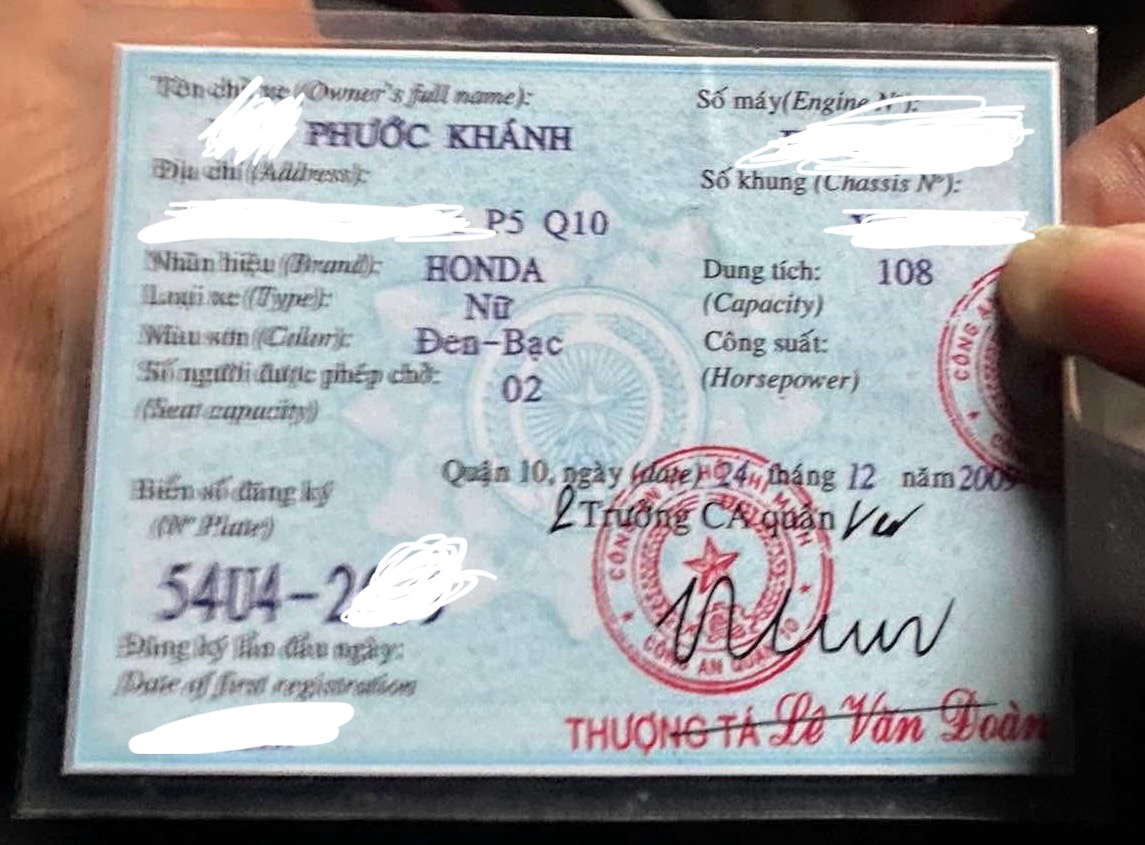 Tên chủ xe (Owner's full name):
PHƯỚC KHÁNH
Địa chỉ (Address):
P5 Q10
Nhãn hiệu (Brand): HONDA
Loại xe (Type): Nữ
Màu sơn (Color): Đen-Bạc
Số người được phép chở: 02
(Seat capacity)
Biển số đăng ký
(Nº Plate)
54U4-2
Đăng ký lần đầu ngày:
Date of first registration
Số máy(Engine Nº):
Số khung (Chassis Nº):
Dung tích: 108
(Capacity)
Công suất:
(Horsepower)
Quận 10, ngày (date) 24 tháng 12 năm 2009
Trưởng CA quận
CÔNG AN QUẬN 10
THƯỢNG TÁ Lê Văn Đoàn
CÔNG A